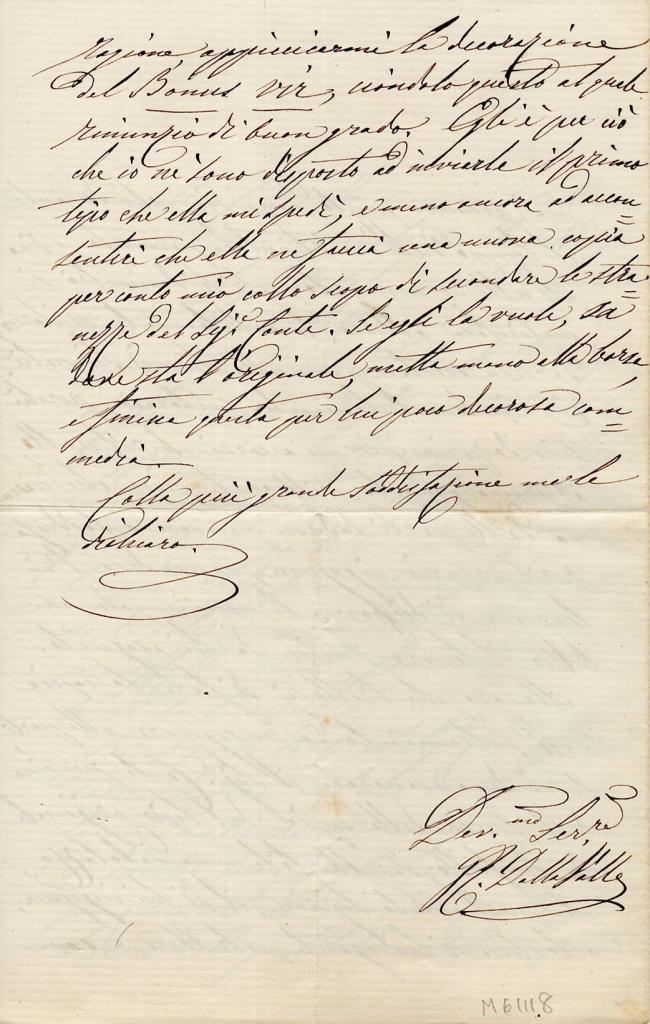 ragione, appiccicarmi la decorazione
del Bonus vir, ciondolo questo al quale
rinunzio di buon grado. Egli è per ciò
che io nè sono disposto ad inviarle il primo
tipo che ella mi spedì, e meno ancora ad accon=
sentire che ella ne faccia una nuova copia
per conto mio collo scopo di secondare le stra=
nezze del Sigr. Conte. Se egli la vuole, sa
dove sta l'originale, metta mano alla borsa,
e finirà questa per lui poco decorosa com=
media.
Colla più grande soddisfazione me le
dichiaro.
Dev.mo Ser.re
Dalla Valle
M61118